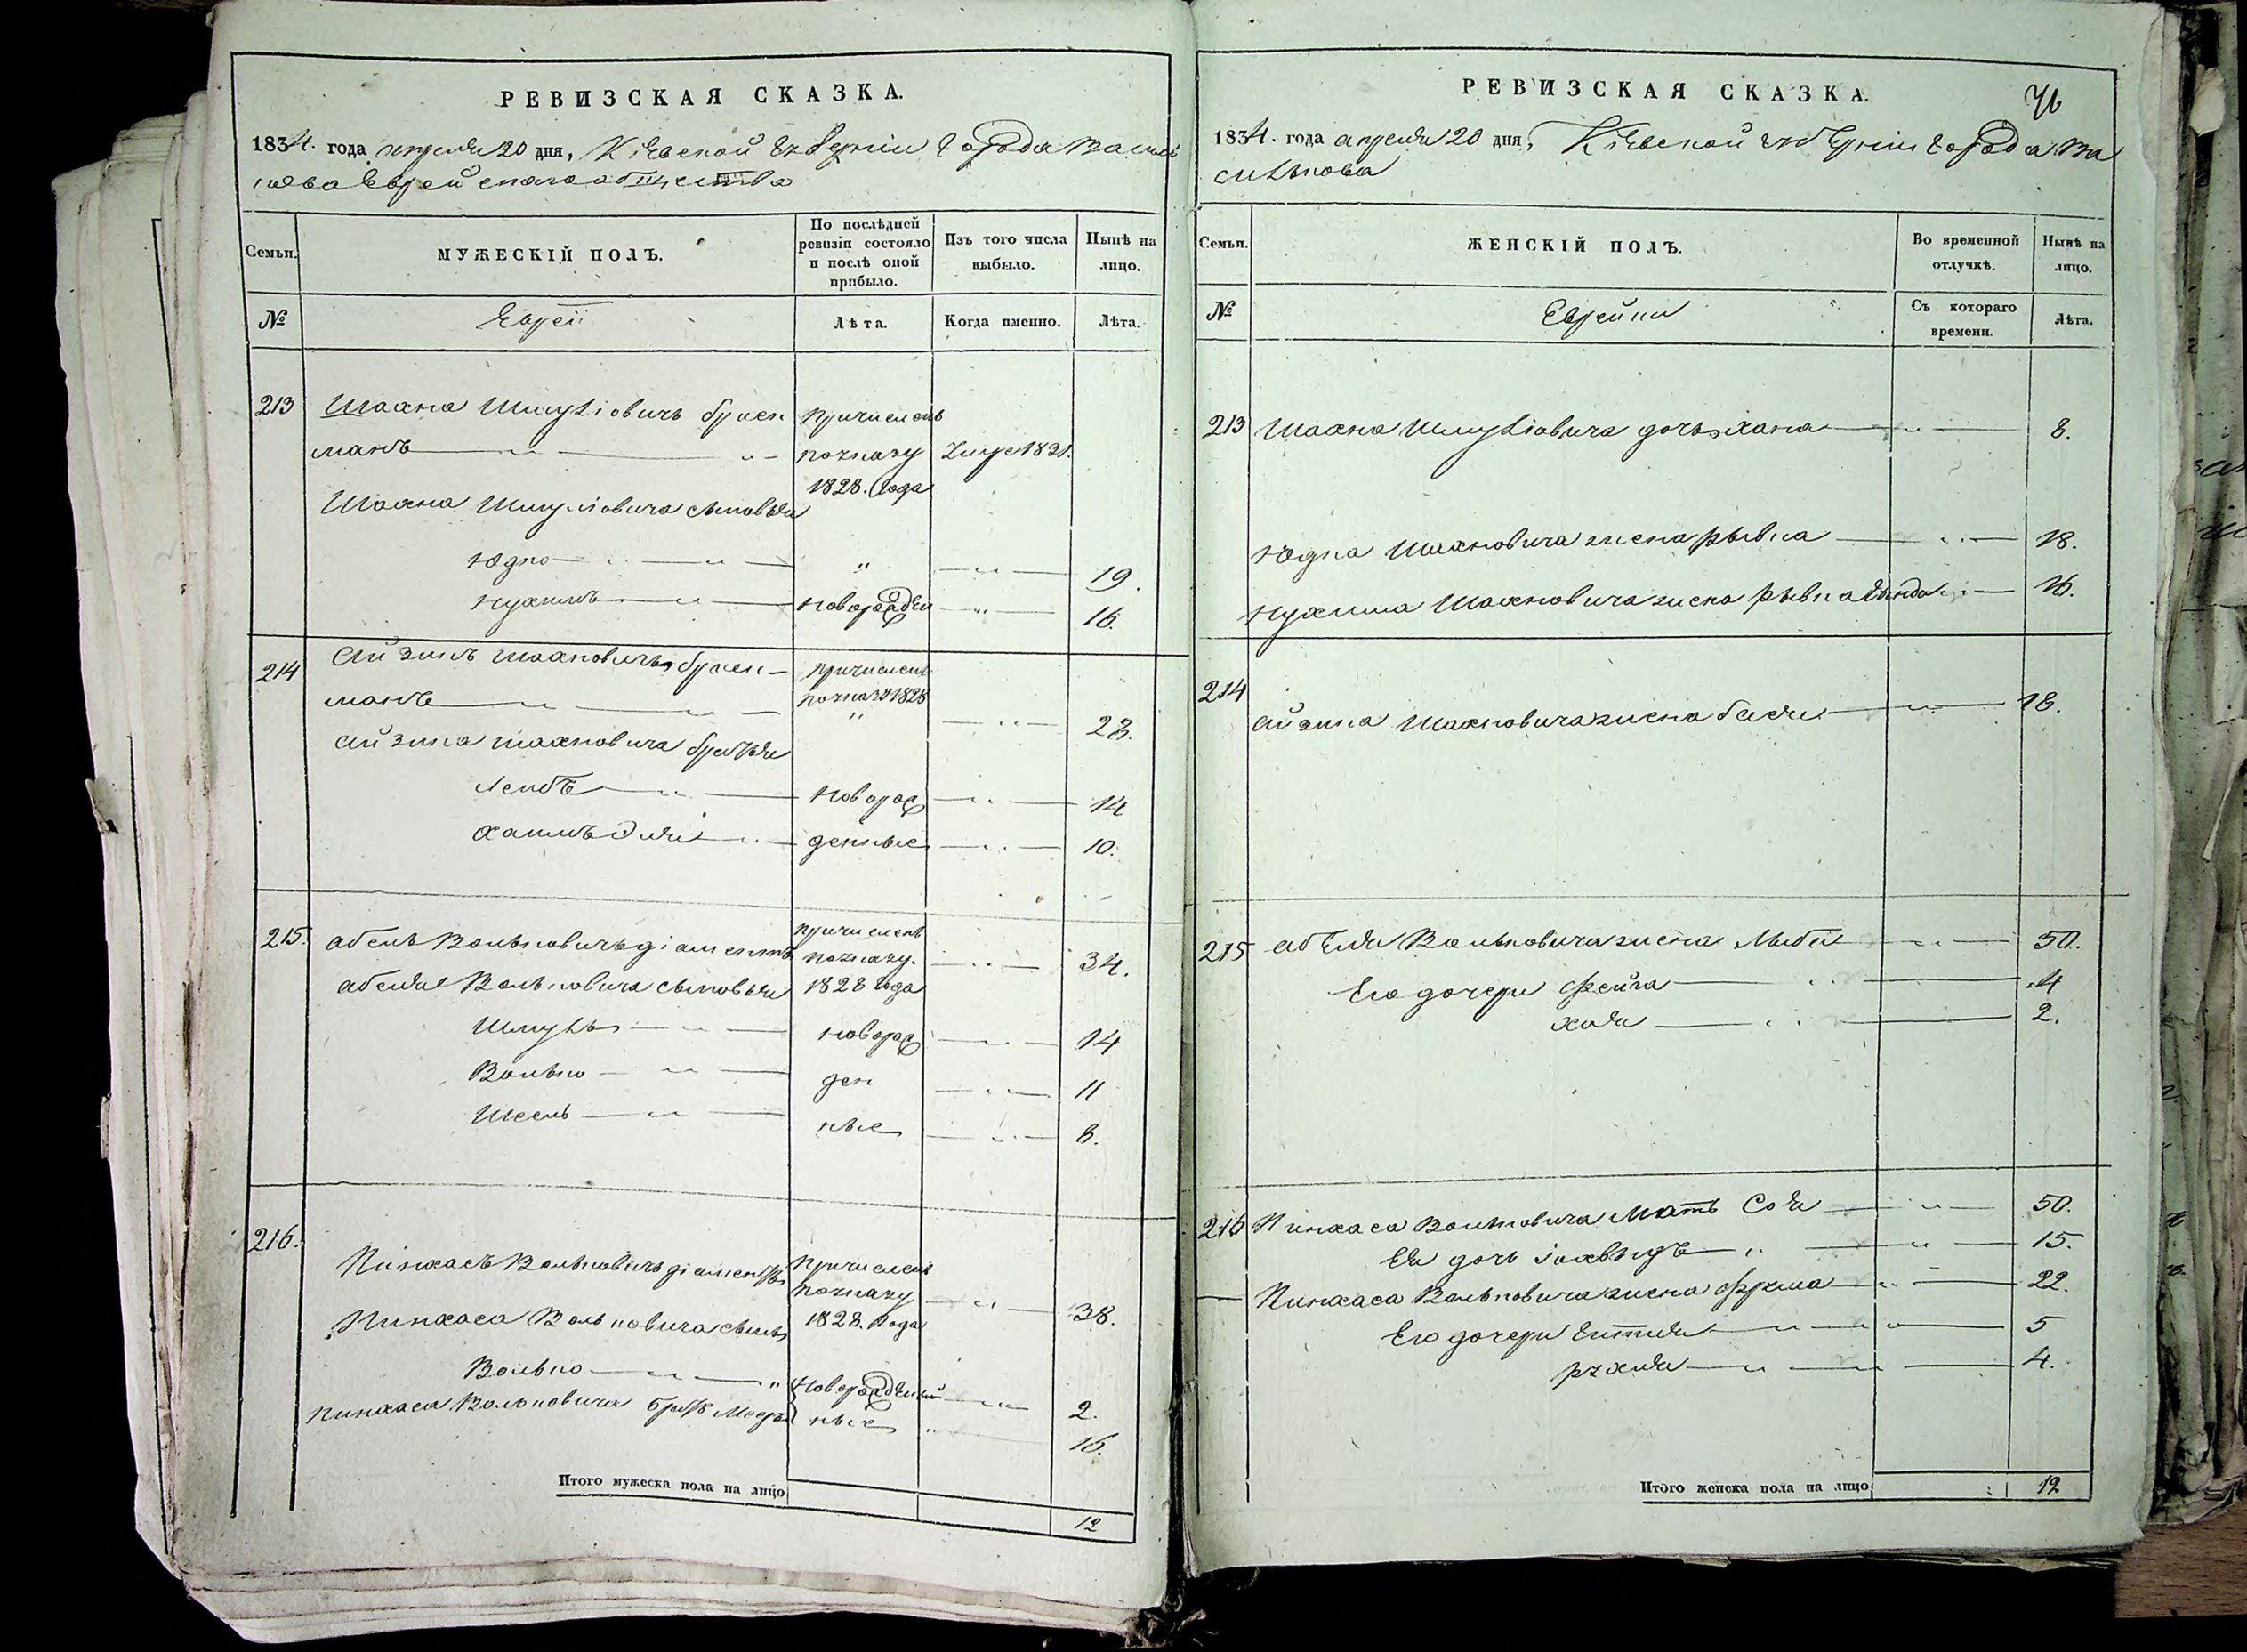 РЕВИЗСКАЯ СКАЗКА.
1834. года апреля 20 дня, Кіевской губерніи города Василь
кова Еврейскаго общества
Семьи.
МУЖЕСКІЙ ПОЛЪ.
По послѣдней
ревизіи состояло
и послѣ оной
прибыло.
Изъ того числа
выбыло.
Нынѣ на
лицо.
№
Евреи
Лѣта.
Когда именно.
Лѣта.
213 Шахна Шмуліовичъ
манъ причисленъ
по указу 1831.
1828. года
Шахна Шмуліовича сыновья
Юдко " 19.
Нухимъ новорожден 16.
214 Айзикъ Шахновичъ
манъ причисленъ
по указу 1828
" 28.
Айзика Шахновича братья
Лейбъ новорож 14
Хаимъ денные 10.
215. Абель Вольковичъ діаментъ причисленъ
по указу. 34.
Абеля Вольковича сыновья 1828 года
Шмуль новорож 14
Волько ден 11
ные 8.
216.
Пинхасъ Вольковичъ діаментъ причисленъ
по указу 38.
Пинхаса Вольковича сынъ 1828. года
Волько " новорожденный 2.
Пинхаса Вольковича братъ ные " 16.
Итого мужеска пола на лицо
12
РЕВИЗСКАЯ СКАЗКА.
76
1834. года апреля 20 дня, Кіевской губерніи города Ва
силькова
Семьи.
ЖЕНСКІЙ ПОЛЪ.
Во временной
отлучкѣ.
Нынѣ на
лицо.
№
Еврейки
Съ котораго
времени.
Лѣта.
213 Шахна Шмуліовича дочь Хана 8.
Юдка Шахновича жена Рывка 18.
Нухима Шахновича жена Рывка 16.
214
Айзика Шахновича жена Бася 18.
215 Абеля Вольковича жена 50.
Его дочери Фейга 4
Хая 2.
216 Пинхаса Вольковича мать Сося 50.
Ея дочь 15.
Пинхаса Вольковича жена Фрима 22.
Его дочери 5
Рухля 4.
Итого женска пола на лицо
12